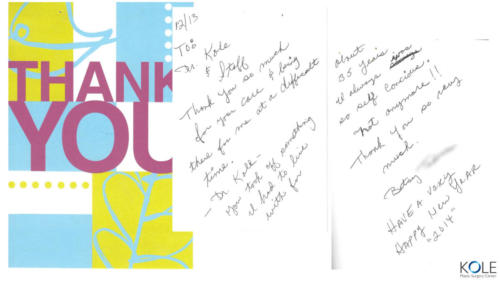 THANK
YOU
12/13
Too
Dr. Kole
& Staff
Thank you so much
for you care & being
there for me at a difficult
time.
— Dr. Kole —
You took of something
I had to live
with for
about
35 years
I always
so self Concious.
Not anymore!!
Thank you so very
much.
Betsy
HAVE A VERY
HAPPY NEW YEAR
"2014"
KOLE
Plastic Surgery Center